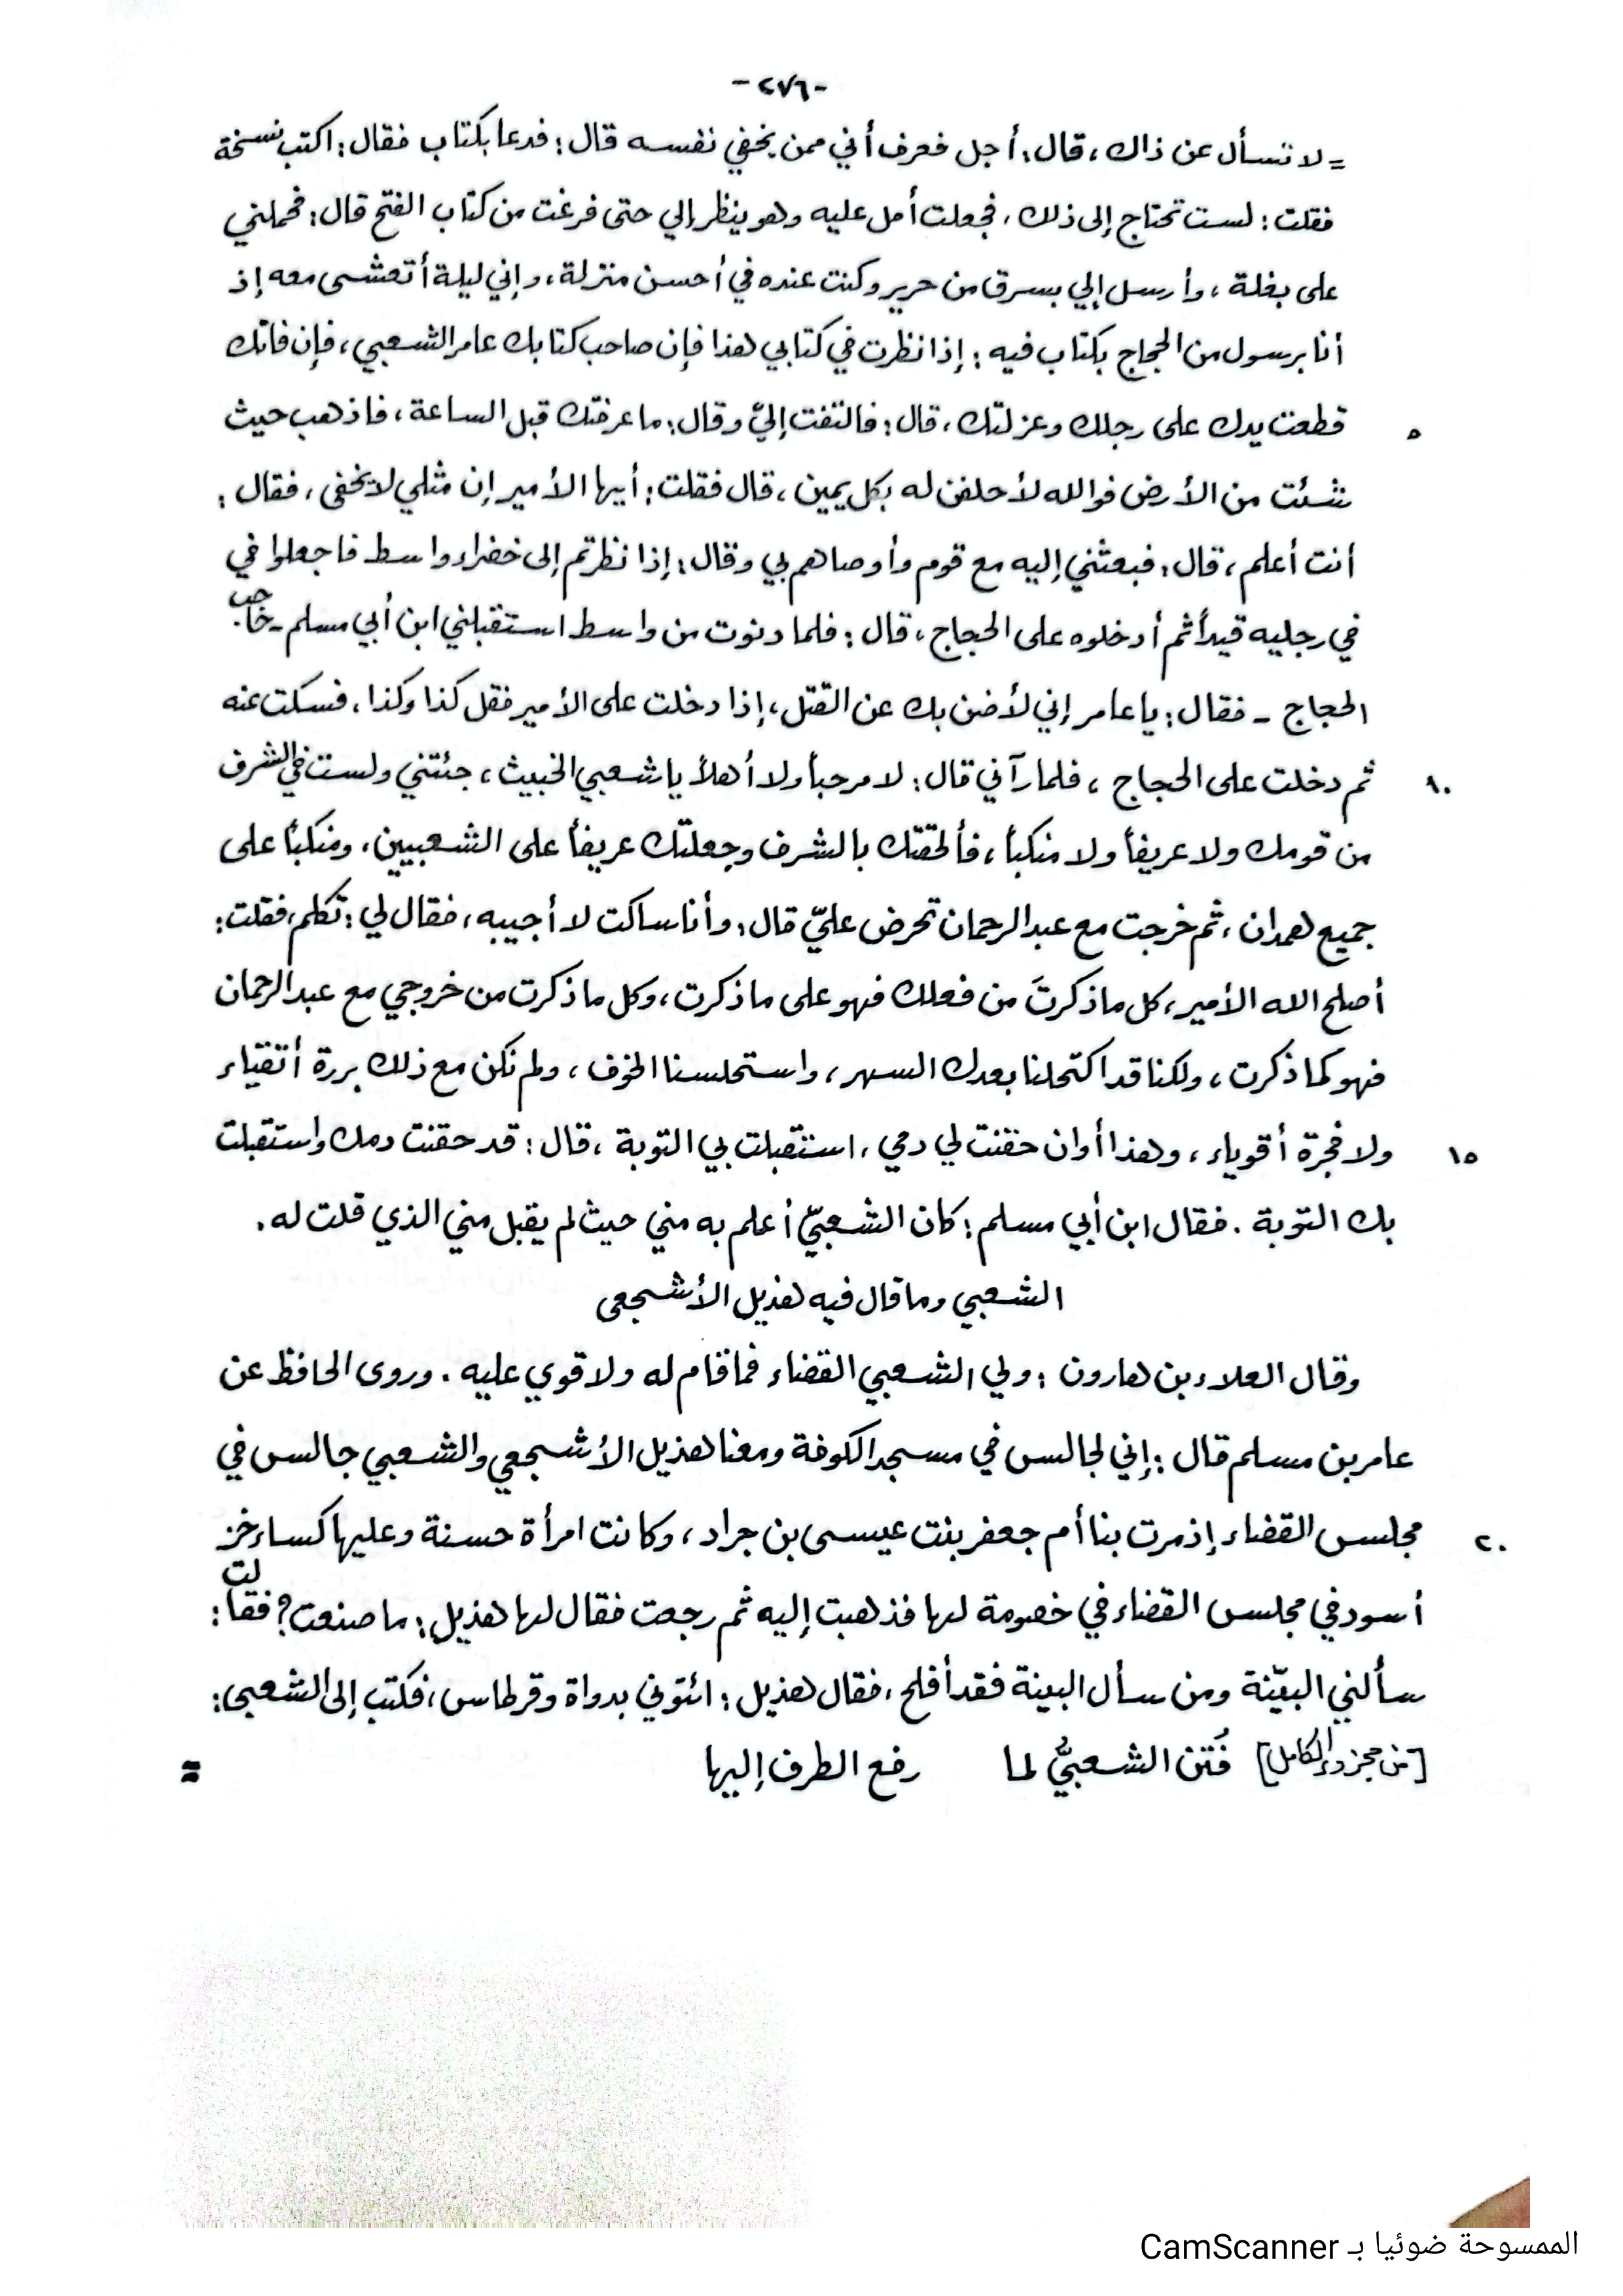 -٢٧٦-
= لا تسأل عن ذاك، قال: أجل فعرف أني ممن يخفي نفسه قال: فدعا بكتاب فقال: اكتب نسخة
فقلت: لست تحتاج إلى ذلك، فجعلت أمل عليه وهو ينظر إلي حتى فرغت من كتاب الفتح قال: فحملني
على بغلة، وأرسل إلي بسرق من حرير وكنت عنده في أحسن منزلة، وإني ليلة أتعشى معه إذ
أنا برسول من الحجاج بكتاب فيه: إذا نظرت في كتابي هذا فإن صاحب كتابك عامر الشعبي، فإن فاتك
٥ قطعت يدك على رجلك وعزلتك، قال: فالتفت إليّ وقال: ما عرفتك قبل الساعة، فاذهب حيث
شئت من الأرض فوالله لأحلفن له بكل يمين، قال فقلت: أيها الأمير إن مثلي لا يخفى، فقال:
أنت أعلم، قال: فبعثني إليه مع قوم وأوصاهم بي وقال: إذا نظرتم إلى خضراء واسط فاجعلوا في
في رجليه قيداً ثم أدخلوه على الحجاج، قال: فلما دنوت من واسط استقبلني ابن أبي مسلم - حاجب
الحجاج - فقال: يا عامر إني لأضن بك عن القتل، إذا دخلت على الأمير فقل كذا وكذا، فسكت عنه
١٠ ثم دخلت على الحجاج، فلما رآني قال: لا مرحباً ولا أهلاً يا شعبي الخبيث، جئتني ولست في الشرف
من قومك ولا عريفاً ولا منكباً، فألحقتك بالشرف وجعلتك عريفاً على الشعبيين، ومنكباً على
جميع همدان، ثم خرجت مع عبد الرحمان تحرض عليّ قال: وأنا ساكت لا أجيبه، فقال لي: تكلم، فقلت:
أصلح الله الأمير، كل ما ذكرتَ من فعلك فهو على ما ذكرت، وكل ما ذكرت من خروجي مع عبد الرحمان
فهو كما ذكرت، ولكنا قد اكتحلنا بعدك السهر، واستحلسنا الخوف، ولم نكن مع ذلك بررة أتقياء
١٥ ولا فجرة أقوياء، وهذا أوان حقنت لي دمي، استقبلت بي التوبة، قال: قد حقنت دمك واستقبلت
بك التوبة. فقال ابن أبي مسلم: كان الشعبيّ أعلم به مني حيث لم يقبل مني الذي قلت له.
الشعبي وما قال فيه هذيل الأشجعي
وقال العلاء بن هارون: ولي الشعبي القضاء فما قام له ولا قوي عليه. وروى الحافظ عن
عامر بن مسلم قال: إني لجالس في مسجد الكوفة ومعنا هذيل الأشجعي والشعبي جالس في
٢٠ مجلس القضاء إذ مرت بنا أم جعفر بنت عيسى بن جراد، وكانت امرأة حسنة وعليها كساء خز
أسود في مجلس القضاء في خصومة لها فذهبت إليه ثم رجعت فقال لها هذيل: ما صنعت؟ فقالت:
سألني البيّنة ومن سأل البينة فقد أفلح، فقال هذيل: ائتوني بدواة وقرطاس، فكتب إلى الشعبي:
[من مجزوء الكامل] فُتن الشعبيُّ لما رفع الطرف إليها =
الممسوحة ضوئيا بـ CamScanner